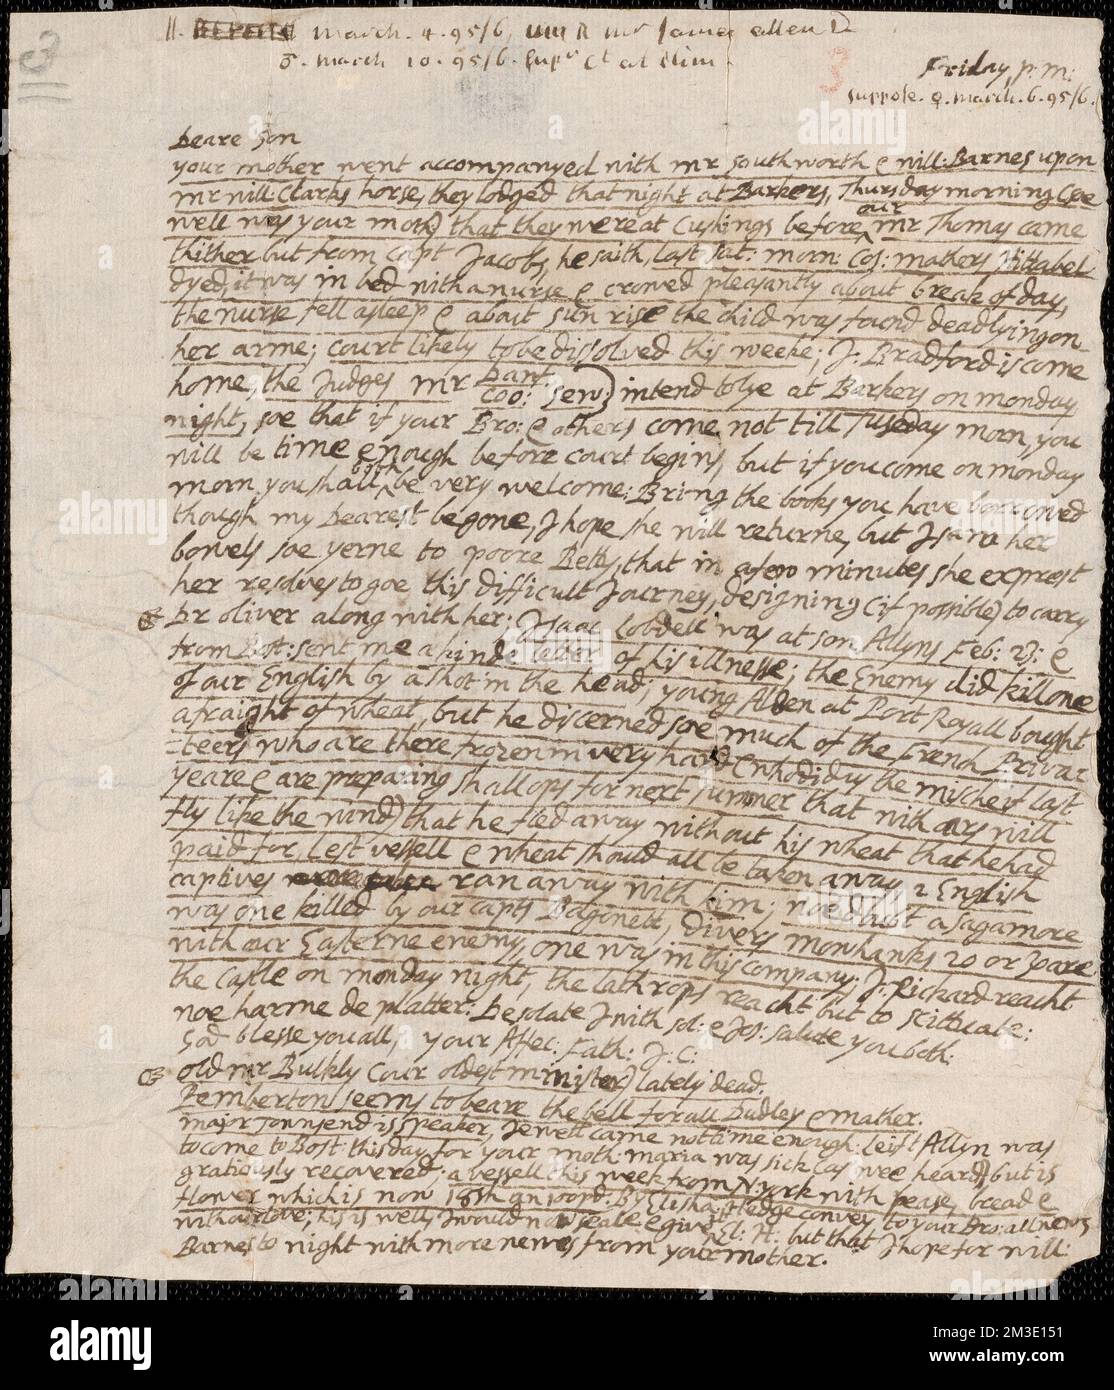 11. March. 4. 95/6, Mr James Allen D
March 10. 95/6. Supr Ct at Plim.
3
Friday, p.m:
Suppose. March. 6. 95/6.
Deare Son
your mother went accompanyed with mr Southworth & will: Barnes upon
mr will: Clarks horse, they lodged that night at Barkers, Thursday morning (soe
well was your moth) that they were at Cushings before our mr Thomas came
thither but from Capt Jacobs, he saith, last sat: morn: Cos: mathers Hittabel
dyed, it was in bed with a nurse & crowed pleasantly about break of day,
the nurse fell asleep & about sun rise the child was found dead lying on
her arme; court likely to be dissolved this weeke; J: Bradford is come
home, the Judges mr Danf: Coo: Sew) intend to lye at Barkers on monday
night, soe that if your Bro: & others come not till Tuseday morn, you
will be time enough before court begins, but if you come on monday
morn, you shall both be very welcome: Bring the books you have borrowed
though my Dearest be gone, I hope she will returne, but I saw her
bowels soe yerne to poore Betty, that in a few minutes she exprest
her resolves to goe this difficult Journey, designing (if possible) to carry
Dr oliver along with her; Isaac Lobdell was at son Allyns Feb: 23: &
from Bost: sent me a kinde letter of his illnesse; the Enemy did kill one
of our English by a shot in the head; young Alden at Port Royall bought
a fraight of wheat, but he discerned soe much of the French Privat
=teers who are there frozen in very hard (& who did us the mischeif last
yeare & are preparing shallops for next summer that with oars will
fly like the wind) that he fled away without his wheat that he had
paid for, lest vessell & wheat should all be taken away, 2 English
captives ran away with him; now doubt a sagamore
was one killed by our capts Bagonett, divers mowhawks 20 or 30 are
with our Easterne enemy, one was in this company; J: Richard reacht
the Castle on monday night, the lathrops reacht but to scittuate:
noe harme de platter: Desolate I with sol: & Jos: salute you both.
God blesse you all, your Affec: Fath: J: C:
old mr Bulkly (our oldest minister) lately dead.
Pemberton seems to beare the bell for all Dudley & mather.
major Townsend is speaker, Jewell came not time enough: Leift Allyn was
to come to Bost: this day for your moth: maria was sick (as wee heard) but is
gratiously recovered; a vessell this week from N: york with pease, bread &
flower which is now 18sh a hundrd: By Elisha Hedge convey to your Bro: all news
with our love; his is well; I would now seale & give it El: H: but that I hope for will:
Barnes to night with more newes from your mother.
alamy
Image ID: 2M3E151
www.alamy.com